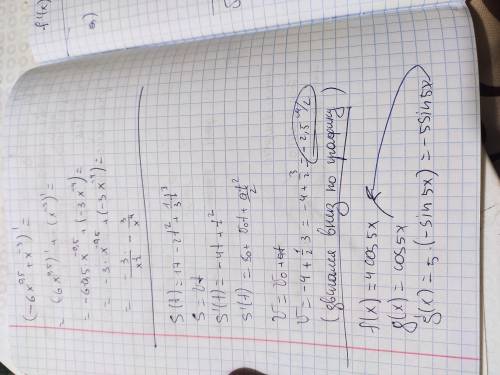 (-6x^0,5 + x^-3)' =
= (6x^0,5)' + (x^-3)' =
= -6·0,5·x^-0,5 + (-3x^-4) =
= -3·x^-0,5 + (-3x^-4) =
= -3/x^½ - 3/x^4
S(t) = 17 - 2t² + 1/3 t³
S = Vt
S'(t) = -4t + t²
S'(t) = S0 + V0t + at²/2
V = V0 + at
V = -4 + ½·3 = -4 + 3/2 = -2,5 м/с
(двигался вниз по графику)
f(x) = 4cos5x
g(x) = cos5x
g'(x) = 5·(-sin5x) = -5sin5x
f'(x)